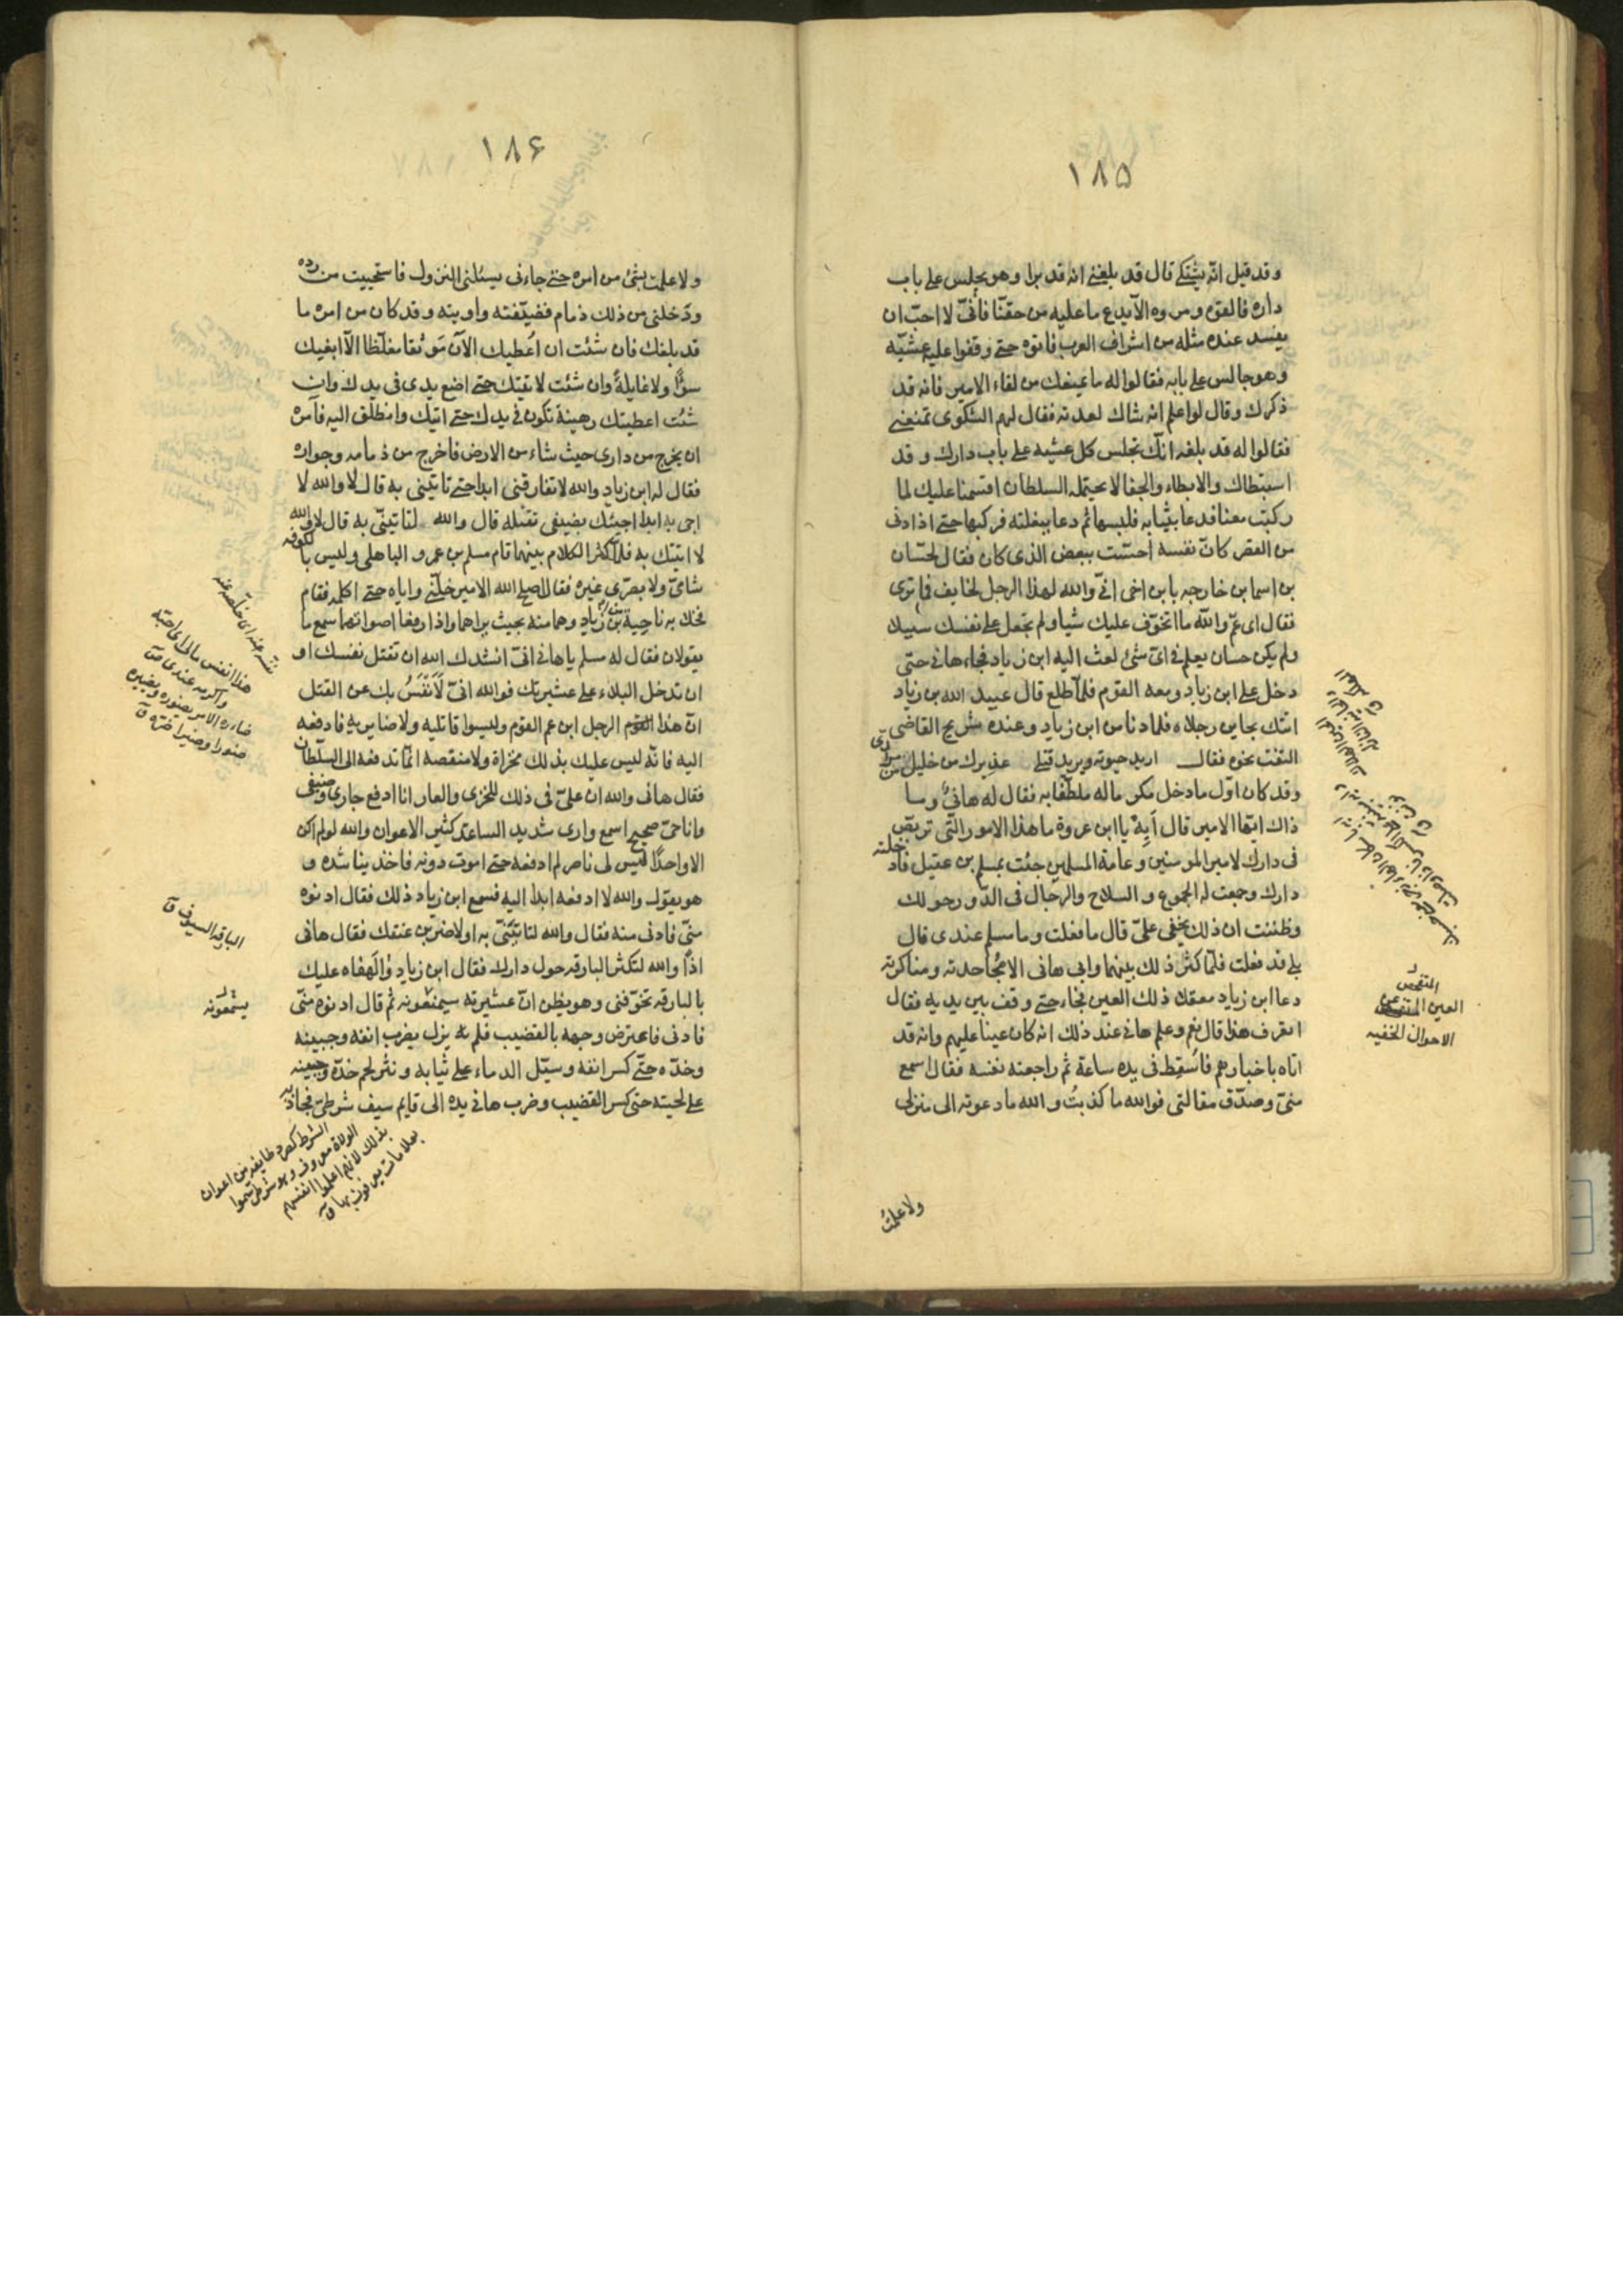 ۱۸۵
و قد قيل انّه يشتكے قال قد بلغنے انه قد برا وهو يجلس علے باب
داره فالقوه ومروه الّا يدع ما عليه من حقّنا فانّى لا احبّ ان
يفسد عنده مثله من اشراف العرب فاتوه حتے وقفوا عليه عشيّه
وهو جالس علے بابه فقالوا له ما يمنعك من لقاء الامير فانه قد
ذكرك وقال لو اعلم انه شاك لعدته فقال لهم الشكوى تمنعنے
فقالوا له قد بلغه انّك تجلس كل عشيه علے باب دارك و قد
استبطاك والابطاء والجفا لا يحتمله السلطان اقسمنا عليك لما
ركبت معنا فدعا بثيابه فلبسها ثم دعا ببغلته فركبها حتے اذا دنى
من القصر كانّ نفسه احسّت ببعض الذى كان فقال لحسّان
بن اسما بن خارجه يا بن اخى انّى والله لهذا الرجل لخايف فما ترى
فقال اى عمّ والله ما اتخوّف عليك شيا ولم تجعل علے نفسك سبيلا
ولم يكن حسان يعلم فى اىّ شئ بعث اليه ابن زياد فجاء هانى حتى
دخل علے ابن زياد ومعه القوم فلمّا طلع قال عبيد الله بن زياد
اتتك بحاين رجلاه فلما دنا من ابن زياد وعنده شريح القاضى
التفت نحوه فقال اريد حيوته ويريد قتلے عذيرك من خليلك من مراد
وقد كان اوّل ما دخل مكرما له ملطّفا به فقال له هانئ وما
ذاك ايّها الامير قال اَيِهْ يا ابن عروة ما هذا الامور الّتى تربّص
فى دارك لامير المومنين وعامة المسلمين جئت بمسلم بن عقيل فادخلته
دارك وجمعت له الجموع و السلاح والرجال فى الدّور حولك
وظننت ان ذلك يخفى علىّ قال ما فعلت وما مسلم عندى قال
بلے قد فعلت فلمّا كثر ذلك بينهما وابى هانى الا مجُاحدته ومناكرته
دعا ابن زياد معقلا ذلك العين فجاء حتے وقف بين يديه فقال
اتعرف هذا قال نعم وعلم هانى عند ذلك انه كان عينا عليهم وانه قد
اتاه باخبارهم فاسقِط فى يده ساعة ثم راجعته نفسه فقال اسمع
منىّ وصدّق مقالتى فوالله ما كذبتُ و الله ما دعوته الى منزلى
ولا علمتُ
المتفحص
العين
الاحوال الخفيه
۱۸۶
ولا علمت بشئ من امره حتے جاءنى يسئلنى النزول فاستحييت من رده
ودَخلنى من ذلك ذمام فضيّفته واويته وقد كان من امره ما
قد بلغك فان شئت ان اُعطيك الآن مَوثقا مغلّظا الّا ابغيك
سوءًا ولا غايلةً وان شئت لاتيتك حتے اضع يدى فى يدك وان
شئت اعطيتك رهينة تكون فى يدك حتے اتيك وانطلق اليه فآمره
ان يخرج من دارى حيث شاء من الارض فاخرج من ذمامه وجواره
فقال له ابن زياد والله لا تفارقنى ابدا حتے تاتينى به قال لا والله لا
اجى به ابدا اجيئك بضيفى تقتله قال والله لتاتينّى به قال لا والله
لا اتيتك به فلمّا كثر الكلام بينهما قام مسلم بن عمرو الباهلى وليس بالكوفه
شامىّ ولا بصرّى غيره فقال اصلح الله الامير خلّنے واياه حتے اكلمه فقام
فخلا به ناحية من ابن زياد وهما منه بحيث يراهما واذا رفعا اصواتهما سمع ما
يقولان فقال له مسلم يا هانى انّى انشدك الله ان تقتل نفسك او
ان تدخل البلاء علے عشيرتك فوالله انّى لَاَنفَسُ بك عن القتل
انّ هذا الرجل ابن عم القوم وليسوا قاتليه ولا ضايريه فادفعه
اليه فانّه ليس عليك بذلك مخزاة ولا منقصه انّما تدفعه الى السلطان
فقال هانى والله ان علىّ فى ذلك للخزى والعار انا ادفع جارى وضيفى
وانا حىّ صحيح اسمع وارى شديد الساعد كثير الاعوان والله لو لم اكن
الا واحدًا ليس لى ناصر لم ادفعه حتے اموت دونه فاخذ يناشده و
هو يقول والله لا ادفعه ابدا اليه فسمع ابن زياد ذلك فقال ادنوه
منّى فادنى منه فقال والله لتاتينّى به او لاضربّن عنقك فقال هانى
اذًا والله لتكثر البارقه حول دارك فقال ابن زياد والَهفاه عليك
بالبارقه تخوّفنى وهو يظن انّ عشيرته سيمنعونه ثم قال ادنوه منّى
فادنى فاعترض وجهه بالقضيب فلم يزل يضرب انفه وجبينه
وخدّه حتّے كسر انفه وسيّل الدماء علے ثيابه و نثر لحم خدّه وجبينه
علے لحيته حتى كسر القضيب وضرب هانى يده الى قايم سيف شرطىّ فجاذبه
هذا انفس مالى اى احبّه
واكرمه عندى ص
ضاره الامر يضوره ويضيره
ضورا وضيرا ضرّه ق
البارقه السيوف ق
يسمعونه
الشرط كصرد طايفه من اعوان
الولاة معروف وهو شرطى سمّوا
بذلك لانهم اعلموا انفسهم
بعلامات يعرفون بها ق